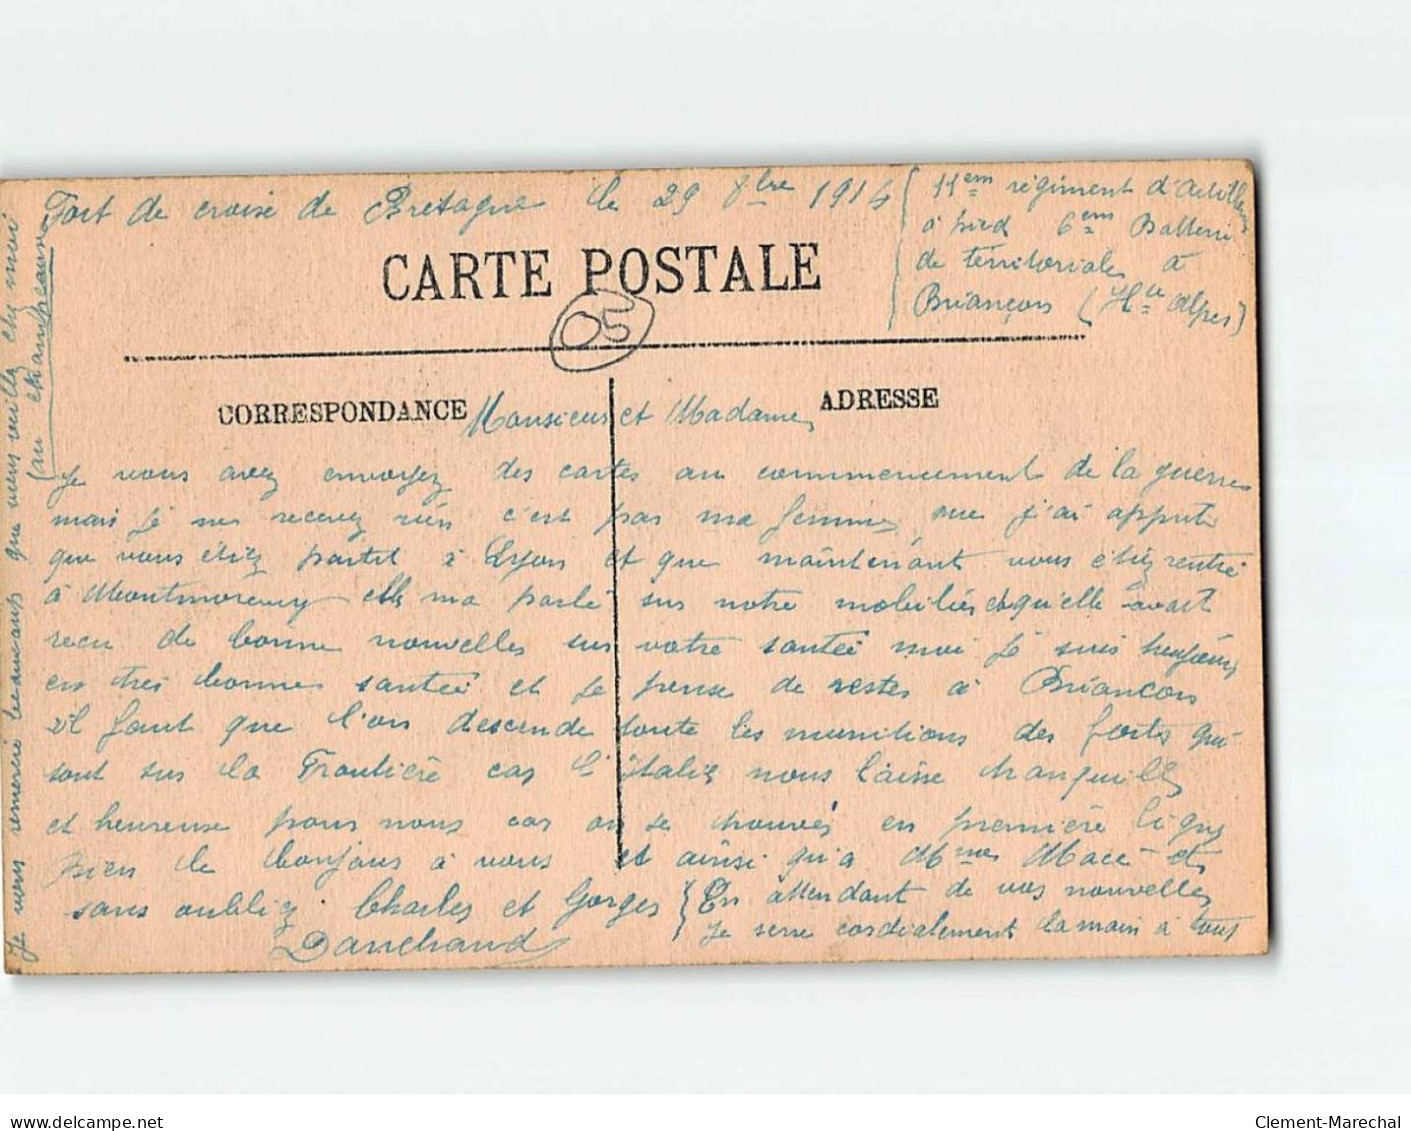 Fort de croise de Bretagne le 29 8bre 1914
11em régiment d'Artillerie
à pied 6em Batterie
de térritoriales à
Briançon (Hte alpes)
CARTE POSTALE
05
CORRESPONDANCE
ADRESSE
Monsieur et Madame,
Je vous avez envoyez des cartes au commencement de la guerres
mais je nes recevez rien c'est pas ma femmes que j'ai apprit
que vous étiez partit à Lyon et que maintenant vous étiez rentré
à Montmorency elle ma parlé sur notre mobiliés et qu'elle avait
recu de bonne nouvelles sur votre santée moi je suis toujours
en trés bonnes santée et je pense de restes à Briancon
il faut que l'on descende toute les munitions des forts qui
sont sur la Frontière car l'italie nous laisse tranquille
et heureuse pour nous car on se trouvés en première lignes
bien le bonjour à vous et ainsi qu'a Mme Macé et
sans oubliez Charles et Gorges
En attendant de vos nouvelles
Je serre cordialement la main à tous
Danchaud
Je vous remercie beaucoup que vous veuille chez moi
(au champeaum
Clement-Marechal
www.delcampe.net